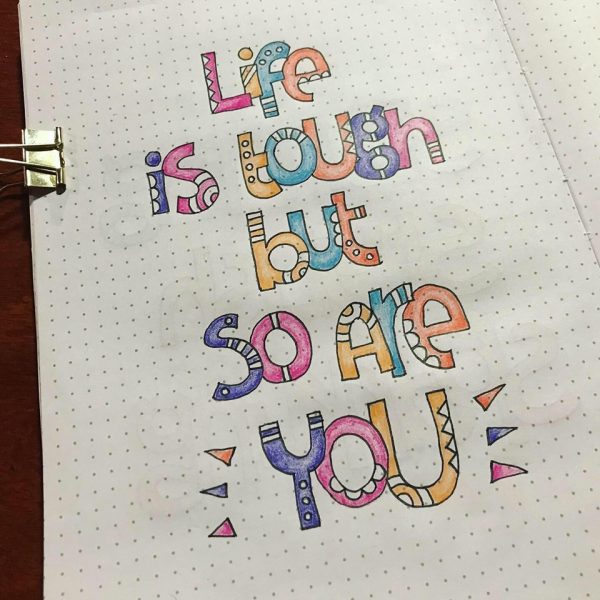 Life
is tough
but
so are
YOU